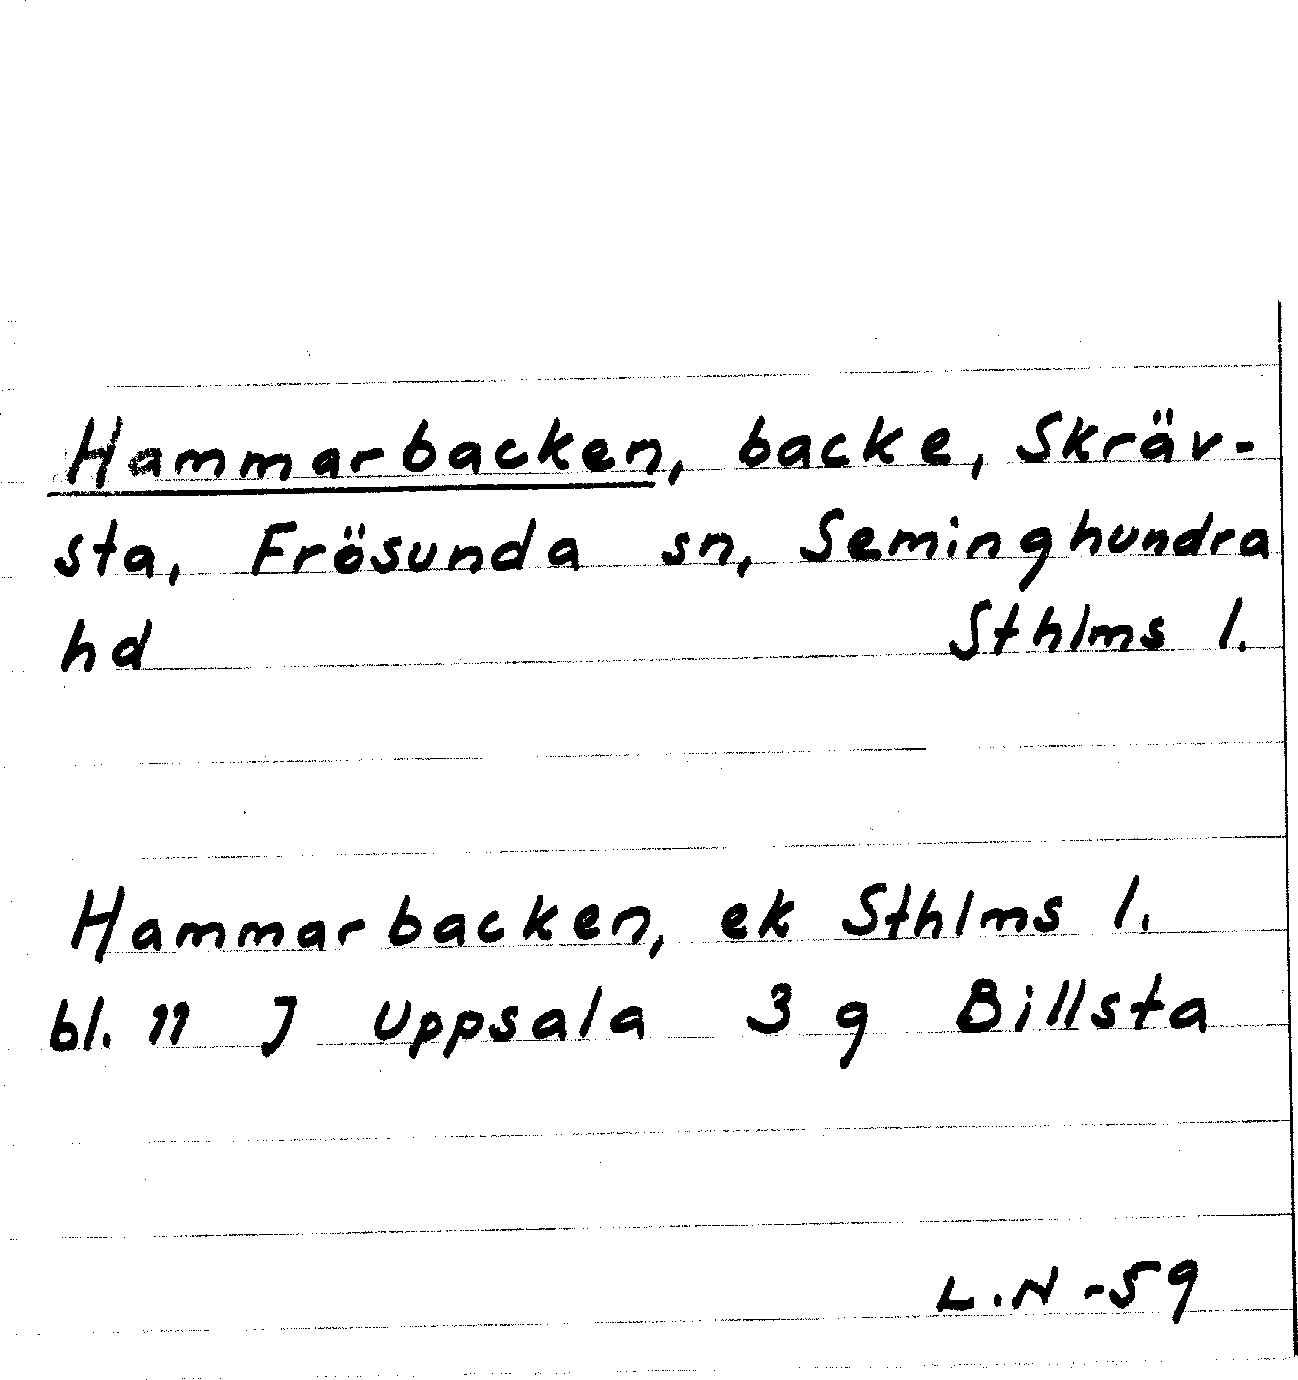 Hammarbacken, backe, Skräv-
sta, Frösunda sn, Seminghundra
hd Sthlms l.
Hammarbacken, ek Sthlms l.
bl. 11 J Uppsala 3 g Billsta
L.N -59